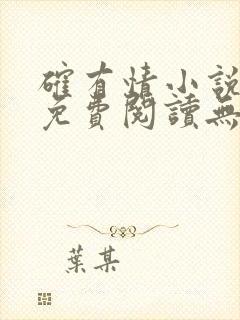 確有情小說
免費閱讀無
葉某